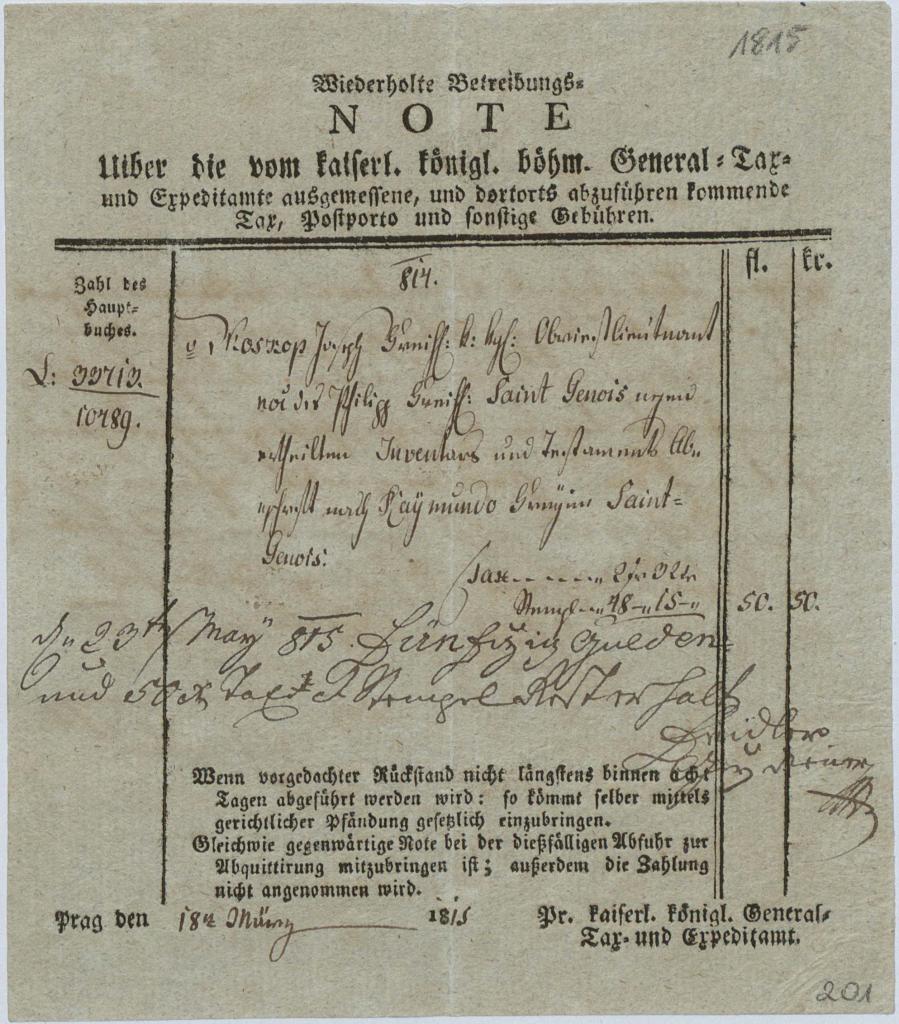 1815
Wiederholte Betreibungs-
NOTE
Uiber die vom kaiserl. königl. böhm. General-Tax-
und Expeditamte ausgemessene, und dortorts abzuführen kommende
Tax, Postporto und sonstige Gebühren.
Zahl des
Haupt-
buches.
814.
fl. kr.
L: 33713.
10489.
Joseph k: Obristlieutnant
Philipp Saint Genois
ertheilten Inventars und Testaments Ab-
schrift nach Raÿmundo Saint-
Genois.
Tax 2 f 32
Stempl 48 - 15 - 50. 50.
den 23th May 815. Fünfzig Gulden
und 50 x Tax Stempel Rest erhalt
Wenn vorgedachter Rückstand nicht längstens binnen acht
Tagen abgeführt werden wird: so kömmt selber mittels
gerichtlicher Pfändung gesetzlich einzubringen.
Gleichwie gegenwärtige Note bei der dießfälligen Abfuhr zur
Abquittirung mitzubringen ist; außerdem die Zahlung
nicht angenommen wird.
Prag den 18n März 1815
Pr. kaiserl. königl. General-
Tax- und Expeditamt.
201